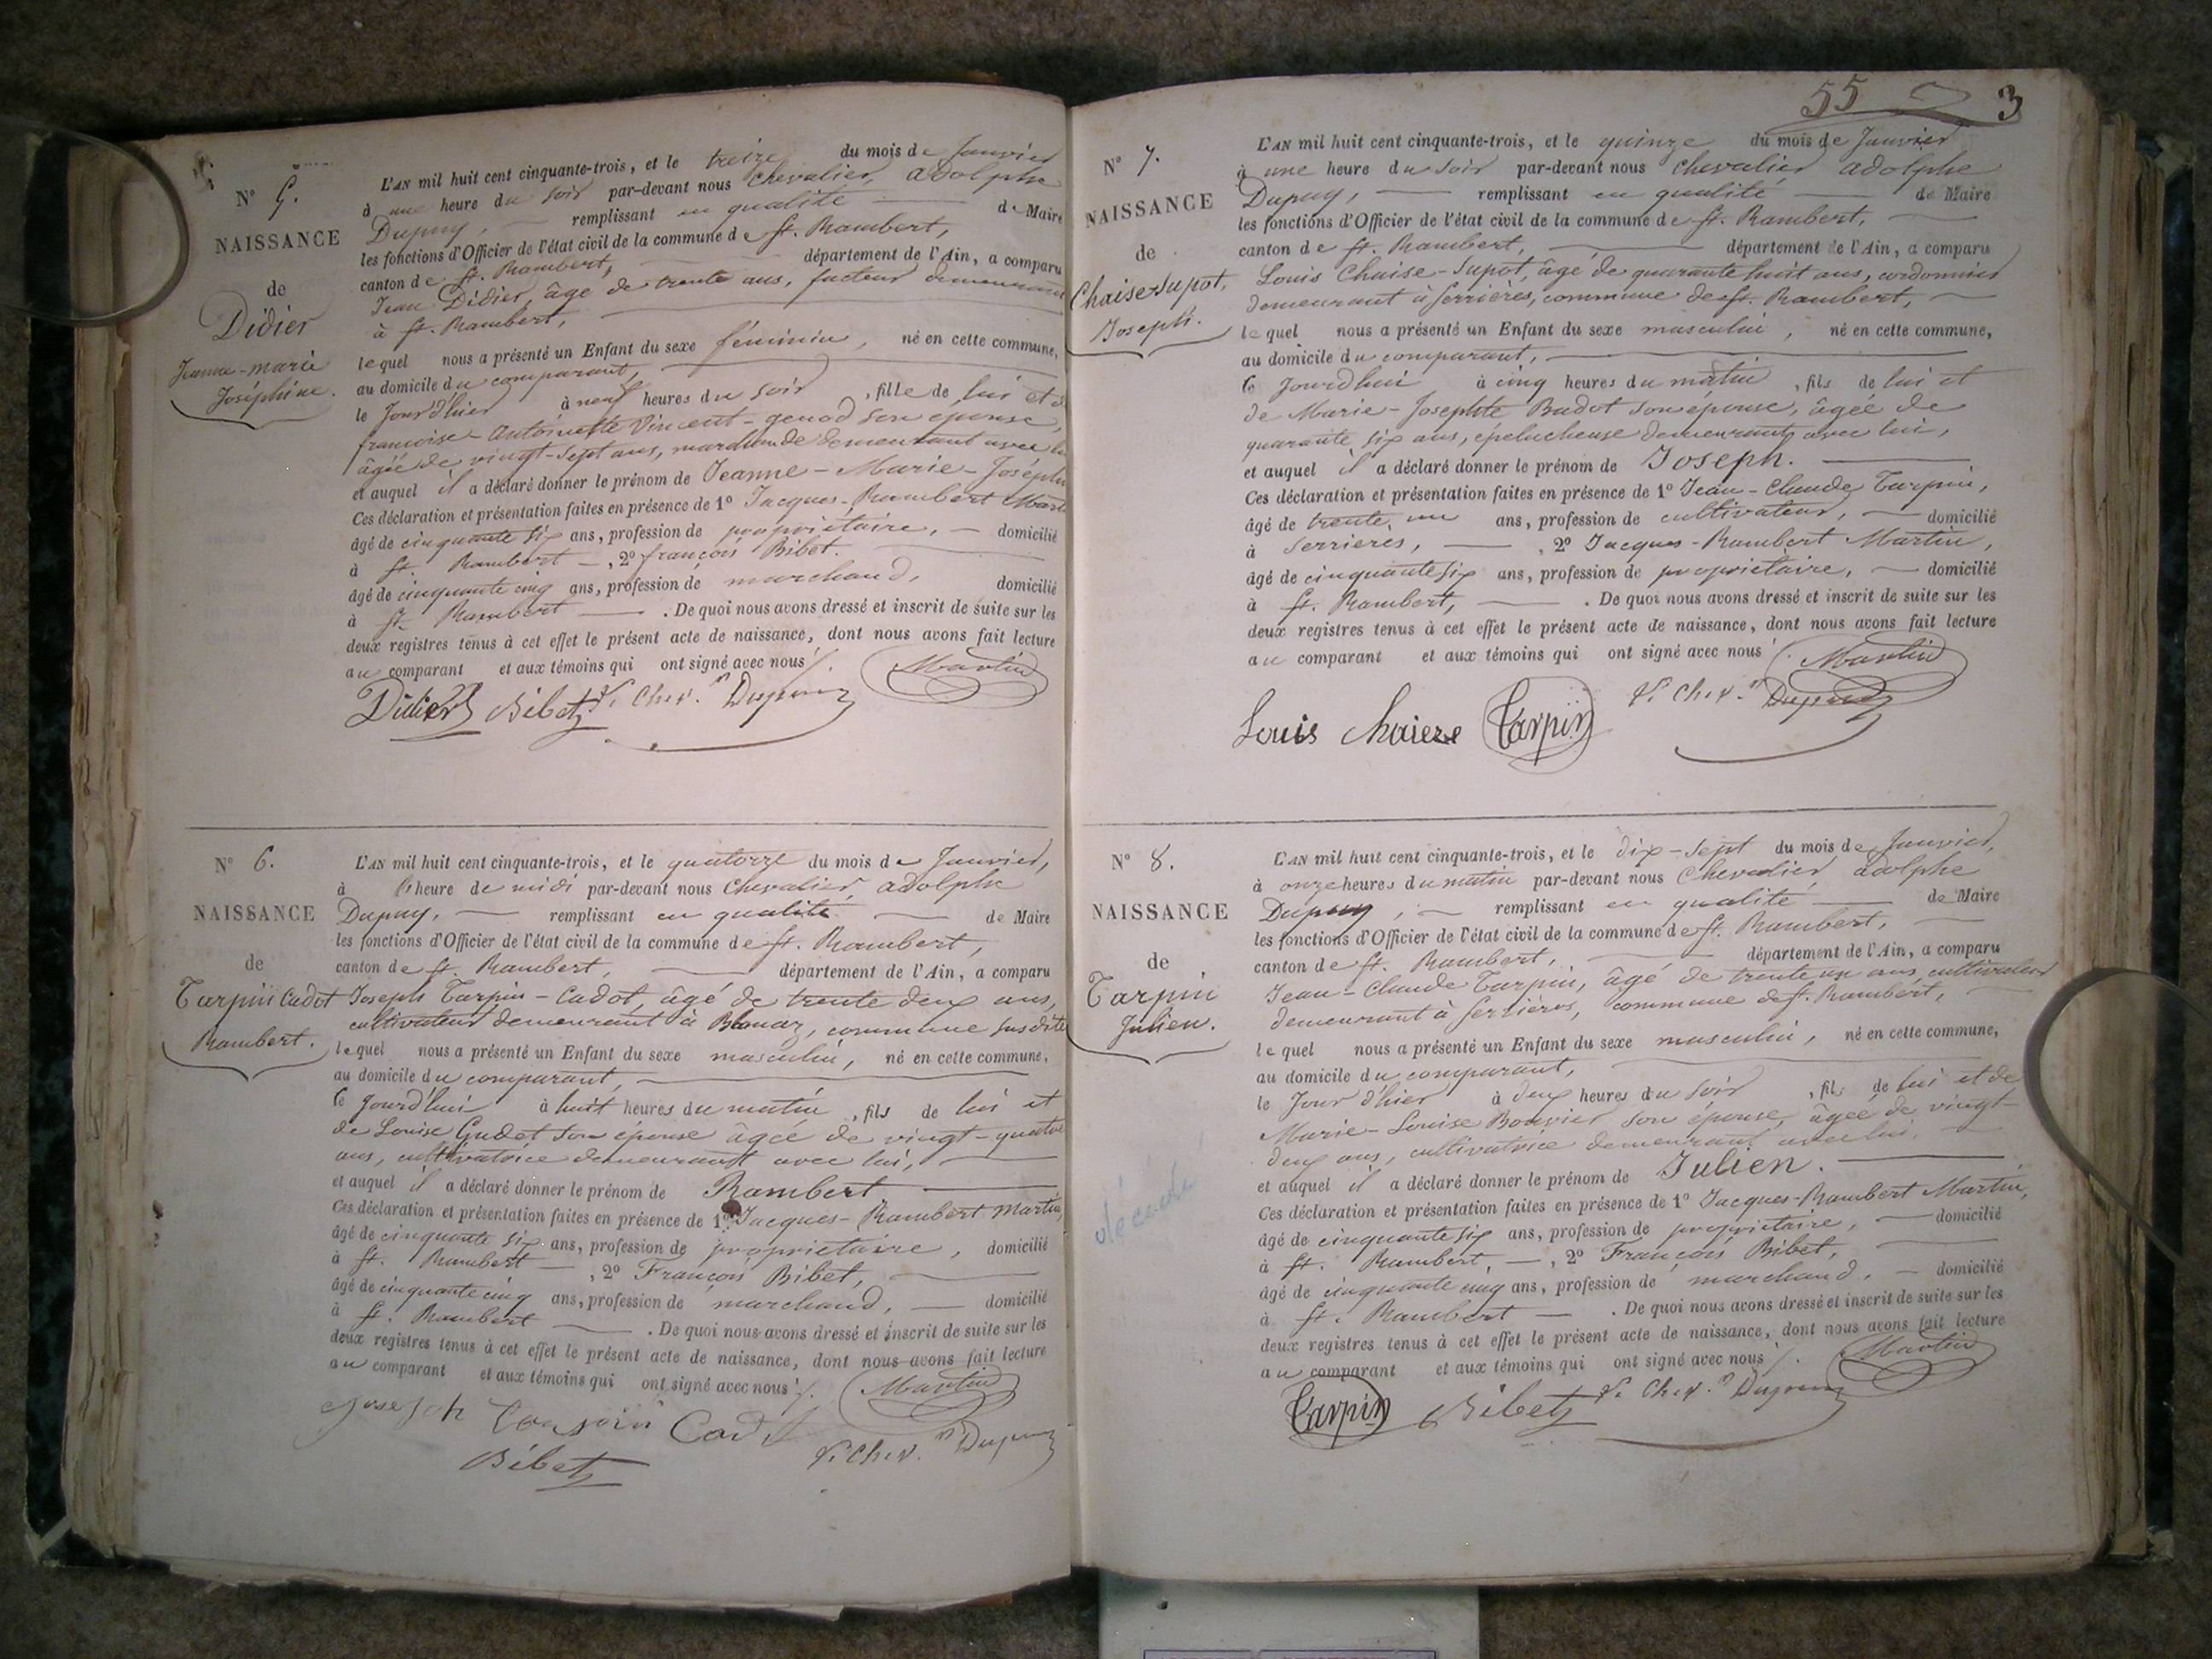 N° 5.
NAISSANCE
de
Didier
Jeanne-marie
Joséphine.
L'AN mil huit cent cinquante-trois, et le treize du mois de Janvier
à une heure du soir par-devant nous Chevalier, adolphe
Dupuy, remplissant en qualité de Maire
les fonctions d'Officier de l'état civil de la commune de St. Rambert,
canton de St. Rambert, département de l'Ain, a comparu
Jean Didier, âgé de trente ans, facteur demeurant
à St. Rambert,
lequel nous a présenté un Enfant du sexe féminin, né en cette commune,
au domicile du comparant,
le jour d'hier à neuf heures du soir, fille de lui et de
françoise-Antoinette Vincent-genod son épouse,
âgée de vingt-sept ans, marchande demeurant avec lui
et auquel il a déclaré donner le prénom de Jeanne-Marie-Joséphine
Ces déclaration et présentation faites en présence de 1° Jacques-Rambert Martin
âgé de cinquante six ans, profession de propriétaire, domicilié
à St. Rambert, 2° françois Bibet.
âgé de cinquante cinq ans, profession de marchand, domicilié
à St. Rambert. De quoi nous avons dressé et inscrit de suite sur les
deux registres tenus à cet effet le présent acte de naissance, dont nous avons fait lecture
au comparant et aux témoins qui ont signé avec nous.
Martin
Didier Bibet Chev. Dupuy
N° 6.
NAISSANCE
de
Tarpin Cadot
Rambert.
L'AN mil huit cent cinquante-trois, et le quatorze du mois de Janvier,
à l'heure de midi par-devant nous Chevalier adolphe
Dupuy, remplissant en qualité de Maire
les fonctions d'Officier de l'état civil de la commune de St. Rambert,
canton de St. Rambert, département de l'Ain, a comparu
Joseph Tarpin-Cadot, âgé de trente deux ans,
cultivateur demeurant à Blanaz, commune susdite
lequel nous a présenté un Enfant du sexe masculin, né en cette commune,
au domicile du comparant,
le jourd'hui à huit heures du matin, fils de lui et
de Louise Gudet son épouse âgée de vingt-quatre
ans, cultivatrice demeurant avec lui,
et auquel il a déclaré donner le prénom de Rambert
Ces déclaration et présentation faites en présence de 1° Jacques-Rambert Martin,
âgé de cinquante six ans, profession de propriétaire, domicilié
à St. Rambert, 2° François Bibet,
âgé de cinquante cinq ans, profession de marchand, domicilié
à St. Rambert. De quoi nous avons dressé et inscrit de suite sur les
deux registres tenus à cet effet le présent acte de naissance, dont nous avons fait lecture
au comparant et aux témoins qui ont signé avec nous.
Martin
Joseph Tarpin Cadot
Bibet Chev. Dupuy
55 3
N° 7.
NAISSANCE
de
Chaise-Supot,
Joseph.
L'AN mil huit cent cinquante-trois, et le quinze du mois de Janvier
à une heure du soir par-devant nous Chevalier adolphe
Dupuy, remplissant en qualité de Maire
les fonctions d'Officier de l'état civil de la commune de St. Rambert,
canton de St. Rambert, département de l'Ain, a comparu
Louis Chaise-Supot, âgé de quarante huit ans, cordonnier
demeurant à Serrières, commune de St. Rambert,
lequel nous a présenté un Enfant du sexe masculin, né en cette commune,
au domicile du comparant,
le jourd'hui à cinq heures du matin, fils de lui et
de Marie-Josephte Budot son épouse, âgée de
quarante six ans, éplucheuse demeurant avec lui,
et auquel il a déclaré donner le prénom de Joseph.
Ces déclaration et présentation faites en présence de 1° Jean-Claude Tarpin,
âgé de trente un ans, profession de cultivateur, domicilié
à Serrières, 2° Jacques-Rambert Martin,
âgé de cinquante six ans, profession de propriétaire, domicilié
à St. Rambert, . De quoi nous avons dressé et inscrit de suite sur les
deux registres tenus à cet effet le présent acte de naissance, dont nous avons fait lecture
au comparant et aux témoins qui ont signé avec nous
Martin
Louis Chaieze Tarpin Chev. Dupuy
N° 8.
NAISSANCE
de
Tarpin
Julien.
décédé
L'AN mil huit cent cinquante-trois, et le dix-sept du mois de Janvier,
à onze heures du matin par-devant nous Chevalier adolphe
Dupuy, remplissant en qualité de Maire
les fonctions d'Officier de l'état civil de la commune de St. Rambert,
canton de St. Rambert, département de l'Ain, a comparu
Jean-Claude Tarpin, âgé de trente un ans, cultivateur
demeurant à Serrières, commune de St. Rambert,
lequel nous a présenté un Enfant du sexe masculin, né en cette commune,
au domicile du comparant,
le Jour d'hier à deux heures du soir, fils de lui et de
Marie-Louise Bouvier son épouse, âgée de vingt-
deux ans, cultivatrice demeurant avec lui,
et auquel il a déclaré donner le prénom de Julien.
Ces déclaration et présentation faites en présence de 1° Jacques-Rambert Martin,
âgé de cinquante six ans, profession de propriétaire, domicilié
à St. Rambert, 2° François Bibet,
âgé de cinquante cinq ans, profession de marchand, domicilié
à St. Rambert. De quoi nous avons dressé et inscrit de suite sur les
deux registres tenus à cet effet le présent acte de naissance, dont nous avons fait lecture
au comparant et aux témoins qui ont signé avec nous.
Martin
Tarpin Bibet Chev. Dupuy